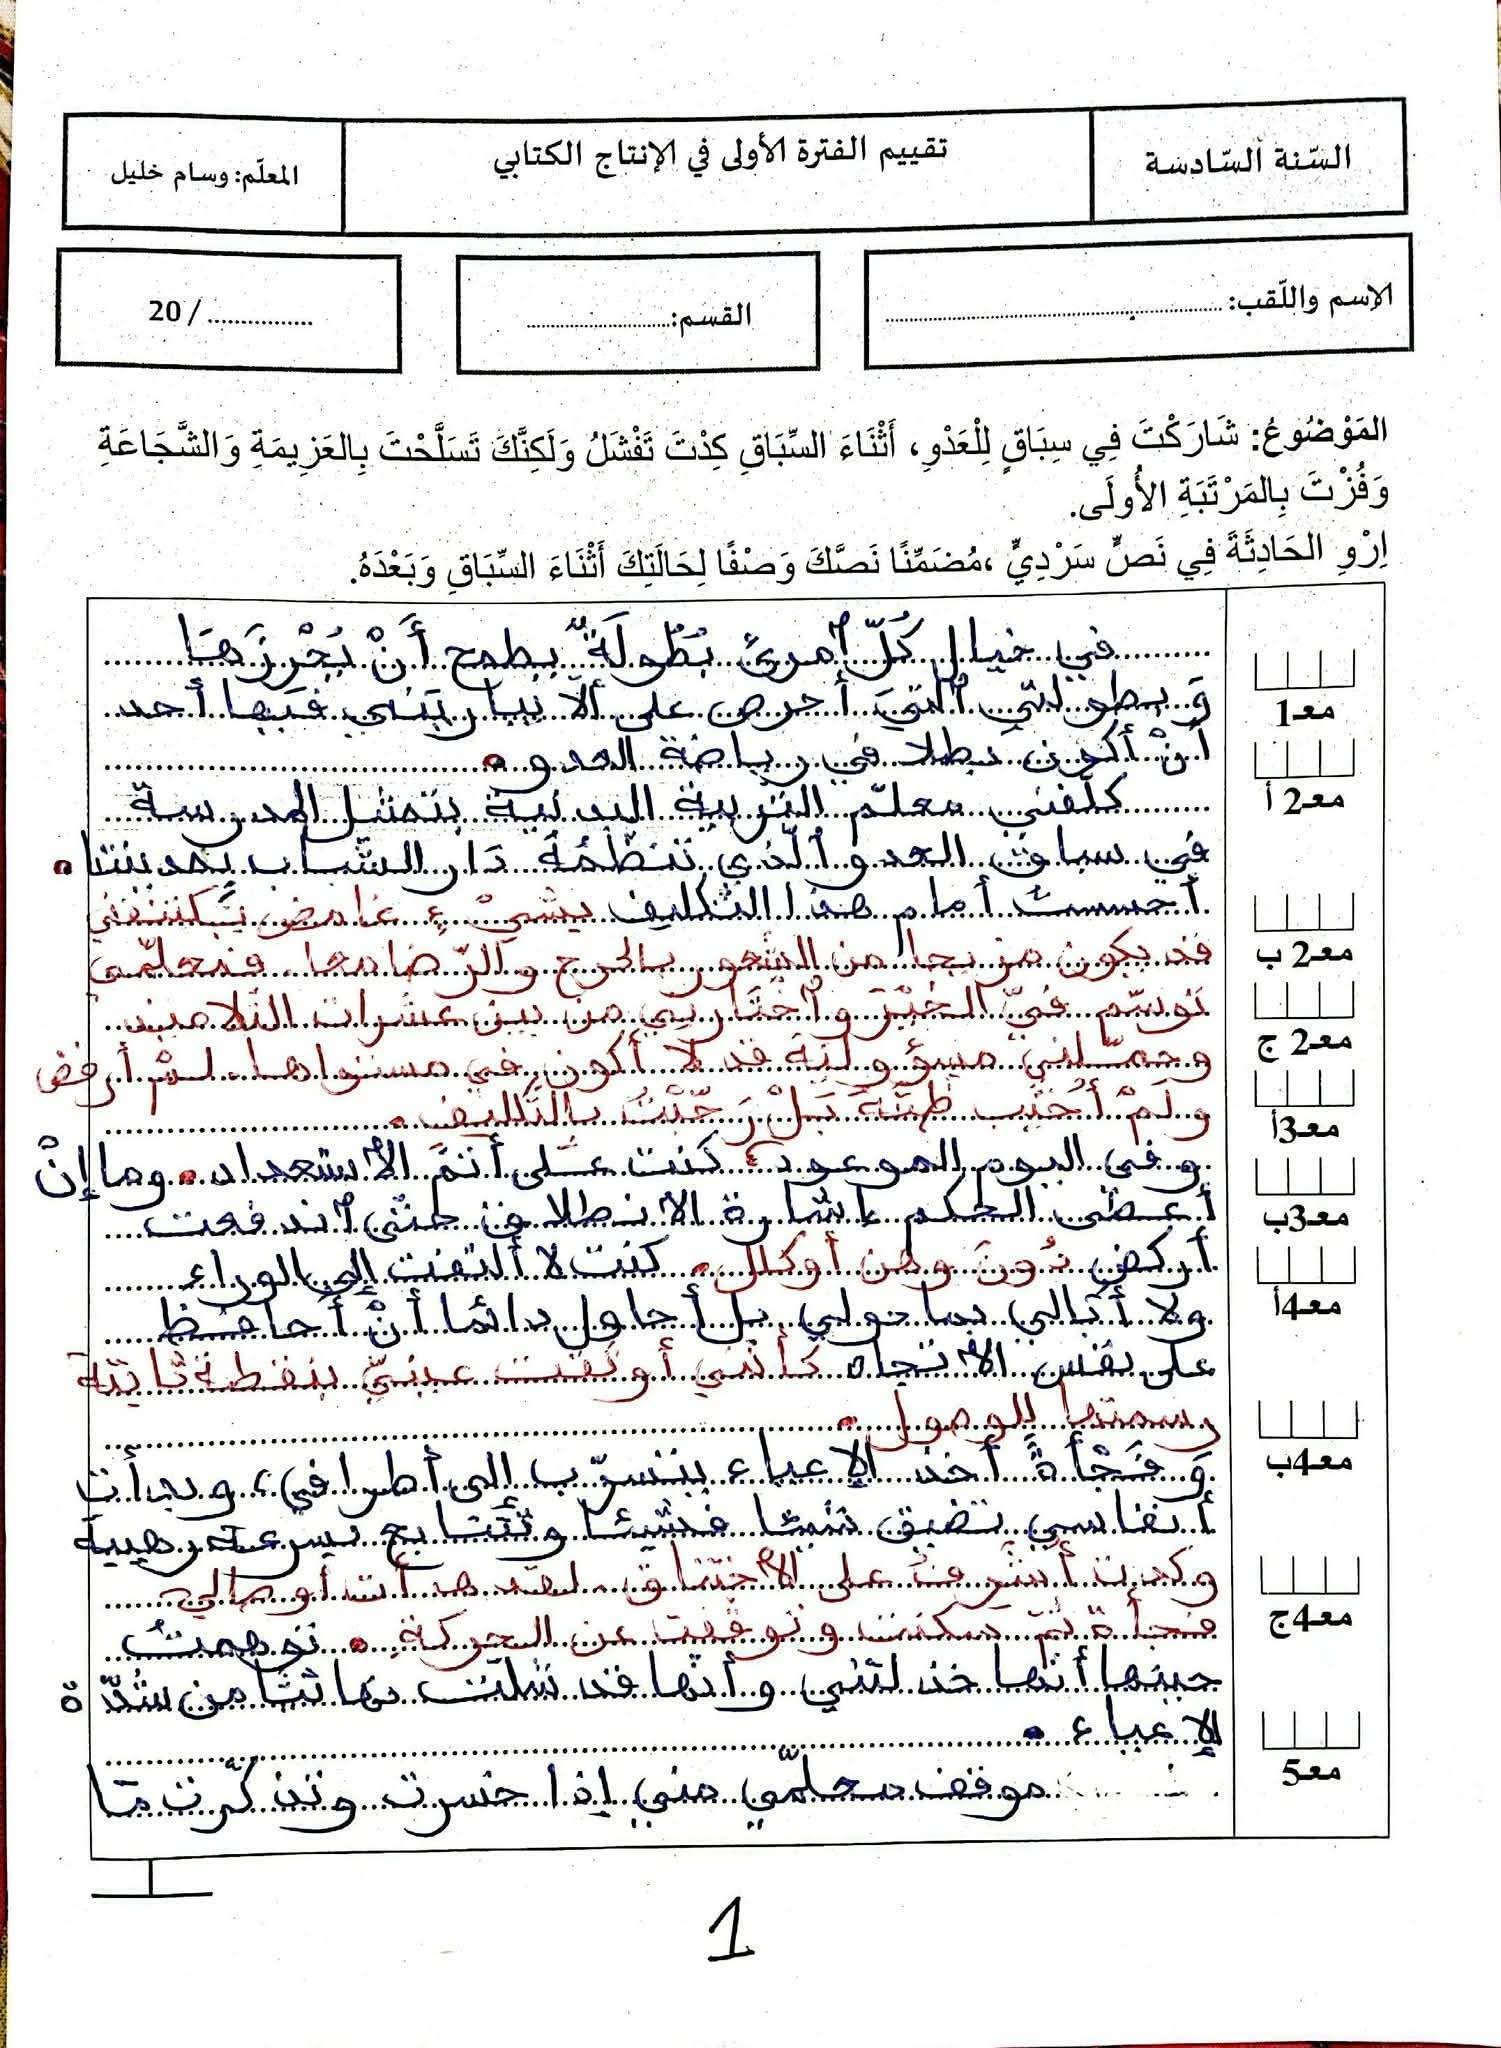 السّنة السّادسة
تقييم الفترة الأولى في الإنتاج الكتابي
المعلّم: وسام خليل
الاسم واللّقب:
القسم:
20 /
المَوْضُوعُ: شَارَكْتَ فِي سِبَاقٍ لِلْعَدْوِ، أَثْنَاءَ السِّبَاقِ كِدْتَ تَفْشَلُ وَلَكِنَّكَ تَسَلَّحْتَ بِالعَزِيمَةِ وَالشَّجَاعَةِ
وَفُزْتَ بِالمَرْتَبَةِ الأُولَى.
اِرْوِ الحَادِثَةَ فِي نَصٍّ سَرْدِيٍّ ،مُضَمِّنًا نَصَّكَ وَصْفًا لِحَالَتِكَ أَثْنَاءَ السِّبَاقِ وَبَعْدَهُ.
في خيال كُلّ اَمرئ بُطُولَةٌ يطمح أَنْ يُحْرِزَهَا
وَبطولتي اَلّتي أحرص على ألّا يباريَني فيها أحد
أَنْ أكون بطلا في رياضة العدو.
كلّفني معلّم التربية البدنية بتمثيل المدرسة
في سباق العدو اَلّذي تنظّمُهُ دَار الشّباب بمدينتنا.
أحسست أمام هذا التّكليف بِشَيْءٍ غامض يَكتنفني
قد يكون مزيجا من الشّعور بالحرج والرّضا معا. فمعلّمي
توسّم فيّ الخَيْرَ واَخْتَارني من بين عشرات التّلاميذ
وحمّلني مسؤوليّة قد لا أكون في مستواها. لمْ أرفض
ولَمْ أُخَيّب ظنّهُ بَلْ رَحّبْتُ بالتّكليف.
وفي اليوم الموعود، كنت على أتمّ الاِستعداد. وما إنْ
أعطى الحكم إشارة الاِنطلاق حتّى اَندفعت
أركض دُونَ وهن أو كلل. كنت لا ألتفت إلى الوراء
ولا أُبالي بما حولي بل أحاول دائما أنْ أُحافظ
على نفس الاِتّجاه كأنّني أوثقت عينيّ بنقطة ثابتة
رسمتها للوصول.
وَفَجْأَةً أخذ الإعياء يتسرّب إلى أطرافي، وبدأت
أنفاسي تضيق شيئا فشيئا وتَتَتابع بسرعة رهيبة
وكدت أشرفُ على الاِختناق. لقد هدأت أوصالي
فجأة ثمّ سكنت وتوقّفت عن الحركةِ. توهمتُ
حينها أنّها خذلتني وأنّها قد شلّت نهائيّا من شدّة
الإعياء.
موقف معلّمي منّي إذا خسرت وتذكّرت مَا
معـ1
معـ2 أ
معـ2 ب
معـ2 ج
معـ3أ
معـ3ب
معـ4أ
معـ4ب
معـ4ج
معـ5
1